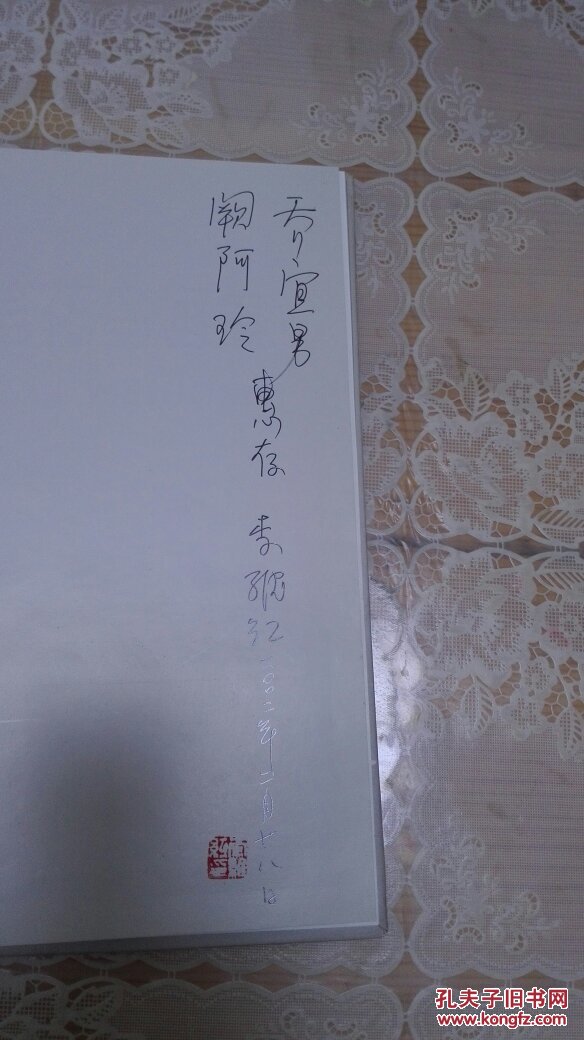 乔宜男
阙阿玲
惠存
李
红
二〇〇二年二月十八日
孔夫子旧书网
www.kongfz.com